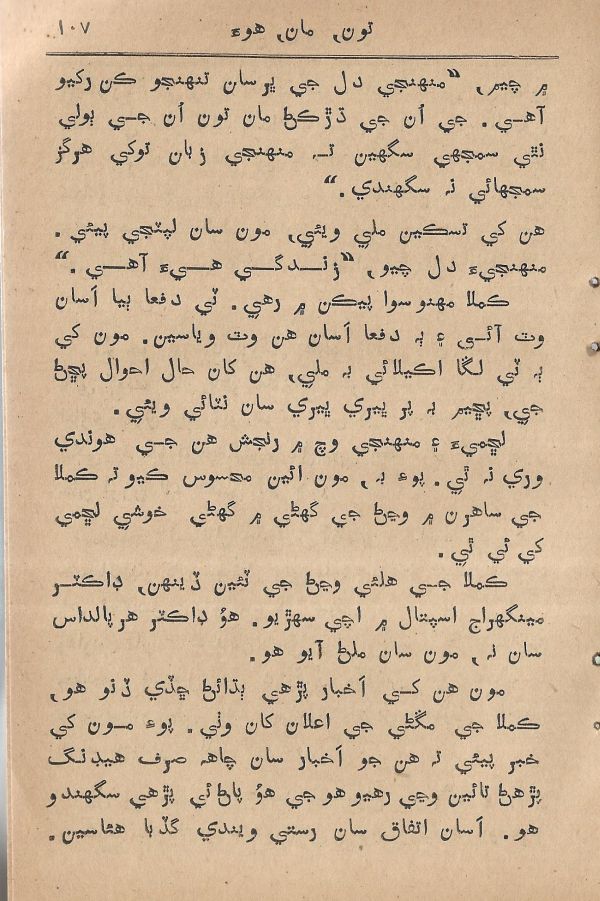 تون، مان، هوءَ
١٠٧
۾ چيم، ”منهنجي دل جي ڀرسان تنهنجو ڪن رکيو
آهي. جي اُن جي ڌڙڪڻ مان تون اُن جي ٻولي
نٿي سمجهي سگهين تہ منهنجي زبان توکي هرگز
سمجهائي نہ سگهندي.“
هن کي تسڪين ملي ويئي، مون سان لپٽجي پيئي.
منهنجيءَ دل چيو، ”زندگي هيءَ آهي.“
ڪملا مهنو سوا پيڪن ۾ رهي. ٽي دفعا ٻيا اَسان
وٽ آئي ۽ ٻہ دفعا اَسان هن وٽ وياسين. مون کي
ٻہ ٽي لڱا اڪيلائي بہ ملي، هن کان حال احوال پڇڻ
جي، پڇيم بہ پر ڀيري ڀيري سان نٽائي ويئي.
لڇميءَ ۽ منهنجي وچ ۾ رنجش هن جي هوندي
وري نہ ٿي. پوءِ بہ، مون ائين محسوس ڪيو تہ ڪملا
جي ساهرن ۾ وڃڻ جي گهڻي ۾ گهڻي خوشي لڇمي
کي ئي ٿي.
ڪملا جي هلئي وڃڻ جي ٽئين ڏينهن، ڊاڪٽر
مينگهراج اسپتال ۾ اچي سهڙيو. هوُ ڊاڪٽر هرپالداس
سان نہ، مون سان ملڻ آيو هو.
مون هن کي اَخبار پڙهي ٻڌائڻ ڇڏي ڏنو هو،
ڪملا جي مڱڻي جي اعلان کان وٺي. پوءِ مون کي
خبر پيئي تہ هن جو اَخبار سان چاهہ صرف هيڊنگ
پڙهڻ تائين وڃي رهيو هو جي هوُ پاڻ ئي پڙهي سگهندو
هو. اَسان اتفاق سان رستي ويندي گڏبا هئاسين.